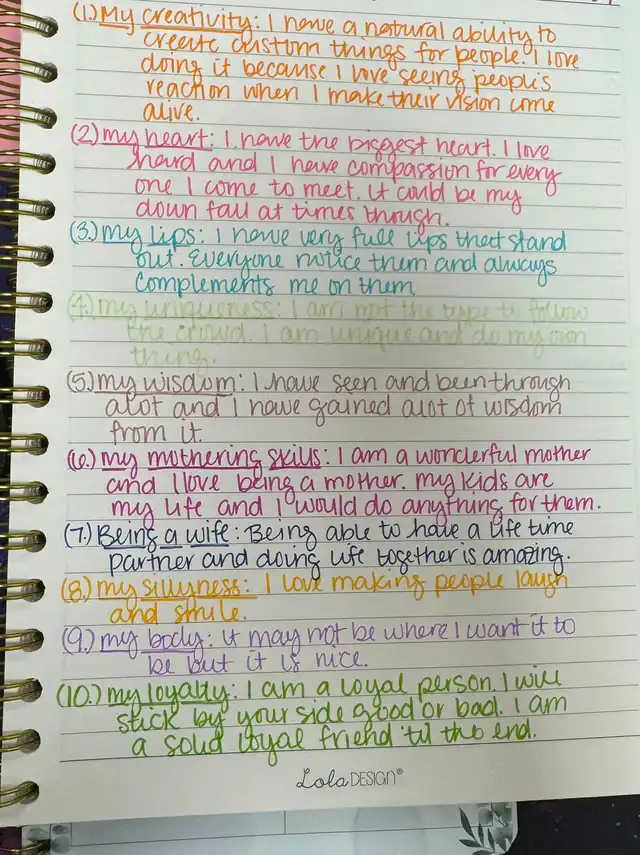 (1) My creativity: I have a natural ability to
create custom things for people. I love
doing it because I love seeing people's
reaction when I make their vision come
alive.
(2) my heart: I have the biggest heart. I love
hard and I have compassion for every
one I come to meet. It could be my
down fall at times though.
(3.) my lips: I have very full lips that stand
out. Everyone notice them and always
complements me on them.
(4) my uniqueness: I am not the type to follow
the crowd. I am unique and do my own
thing.
(5.) my wisdom: I have seen and been through
alot and I have gained alot of wisdom
from it.
(6.) my mothering skills: I am a wonderful mother
and I love being a mother. my kids are
my life and I would do anything for them.
(7.) Being a wife: Being able to have a life time
partner and doing life together is amazing.
(8.) my sillyness: I love making people laugh
and smile.
(9.) my body: it may not be where I want it to
be but it is nice.
(10.) my loyalty: I am a loyal person. I will
stick by your side good or bad. I am
a solid loyal friend 'til the end.
Lola DESIGN®